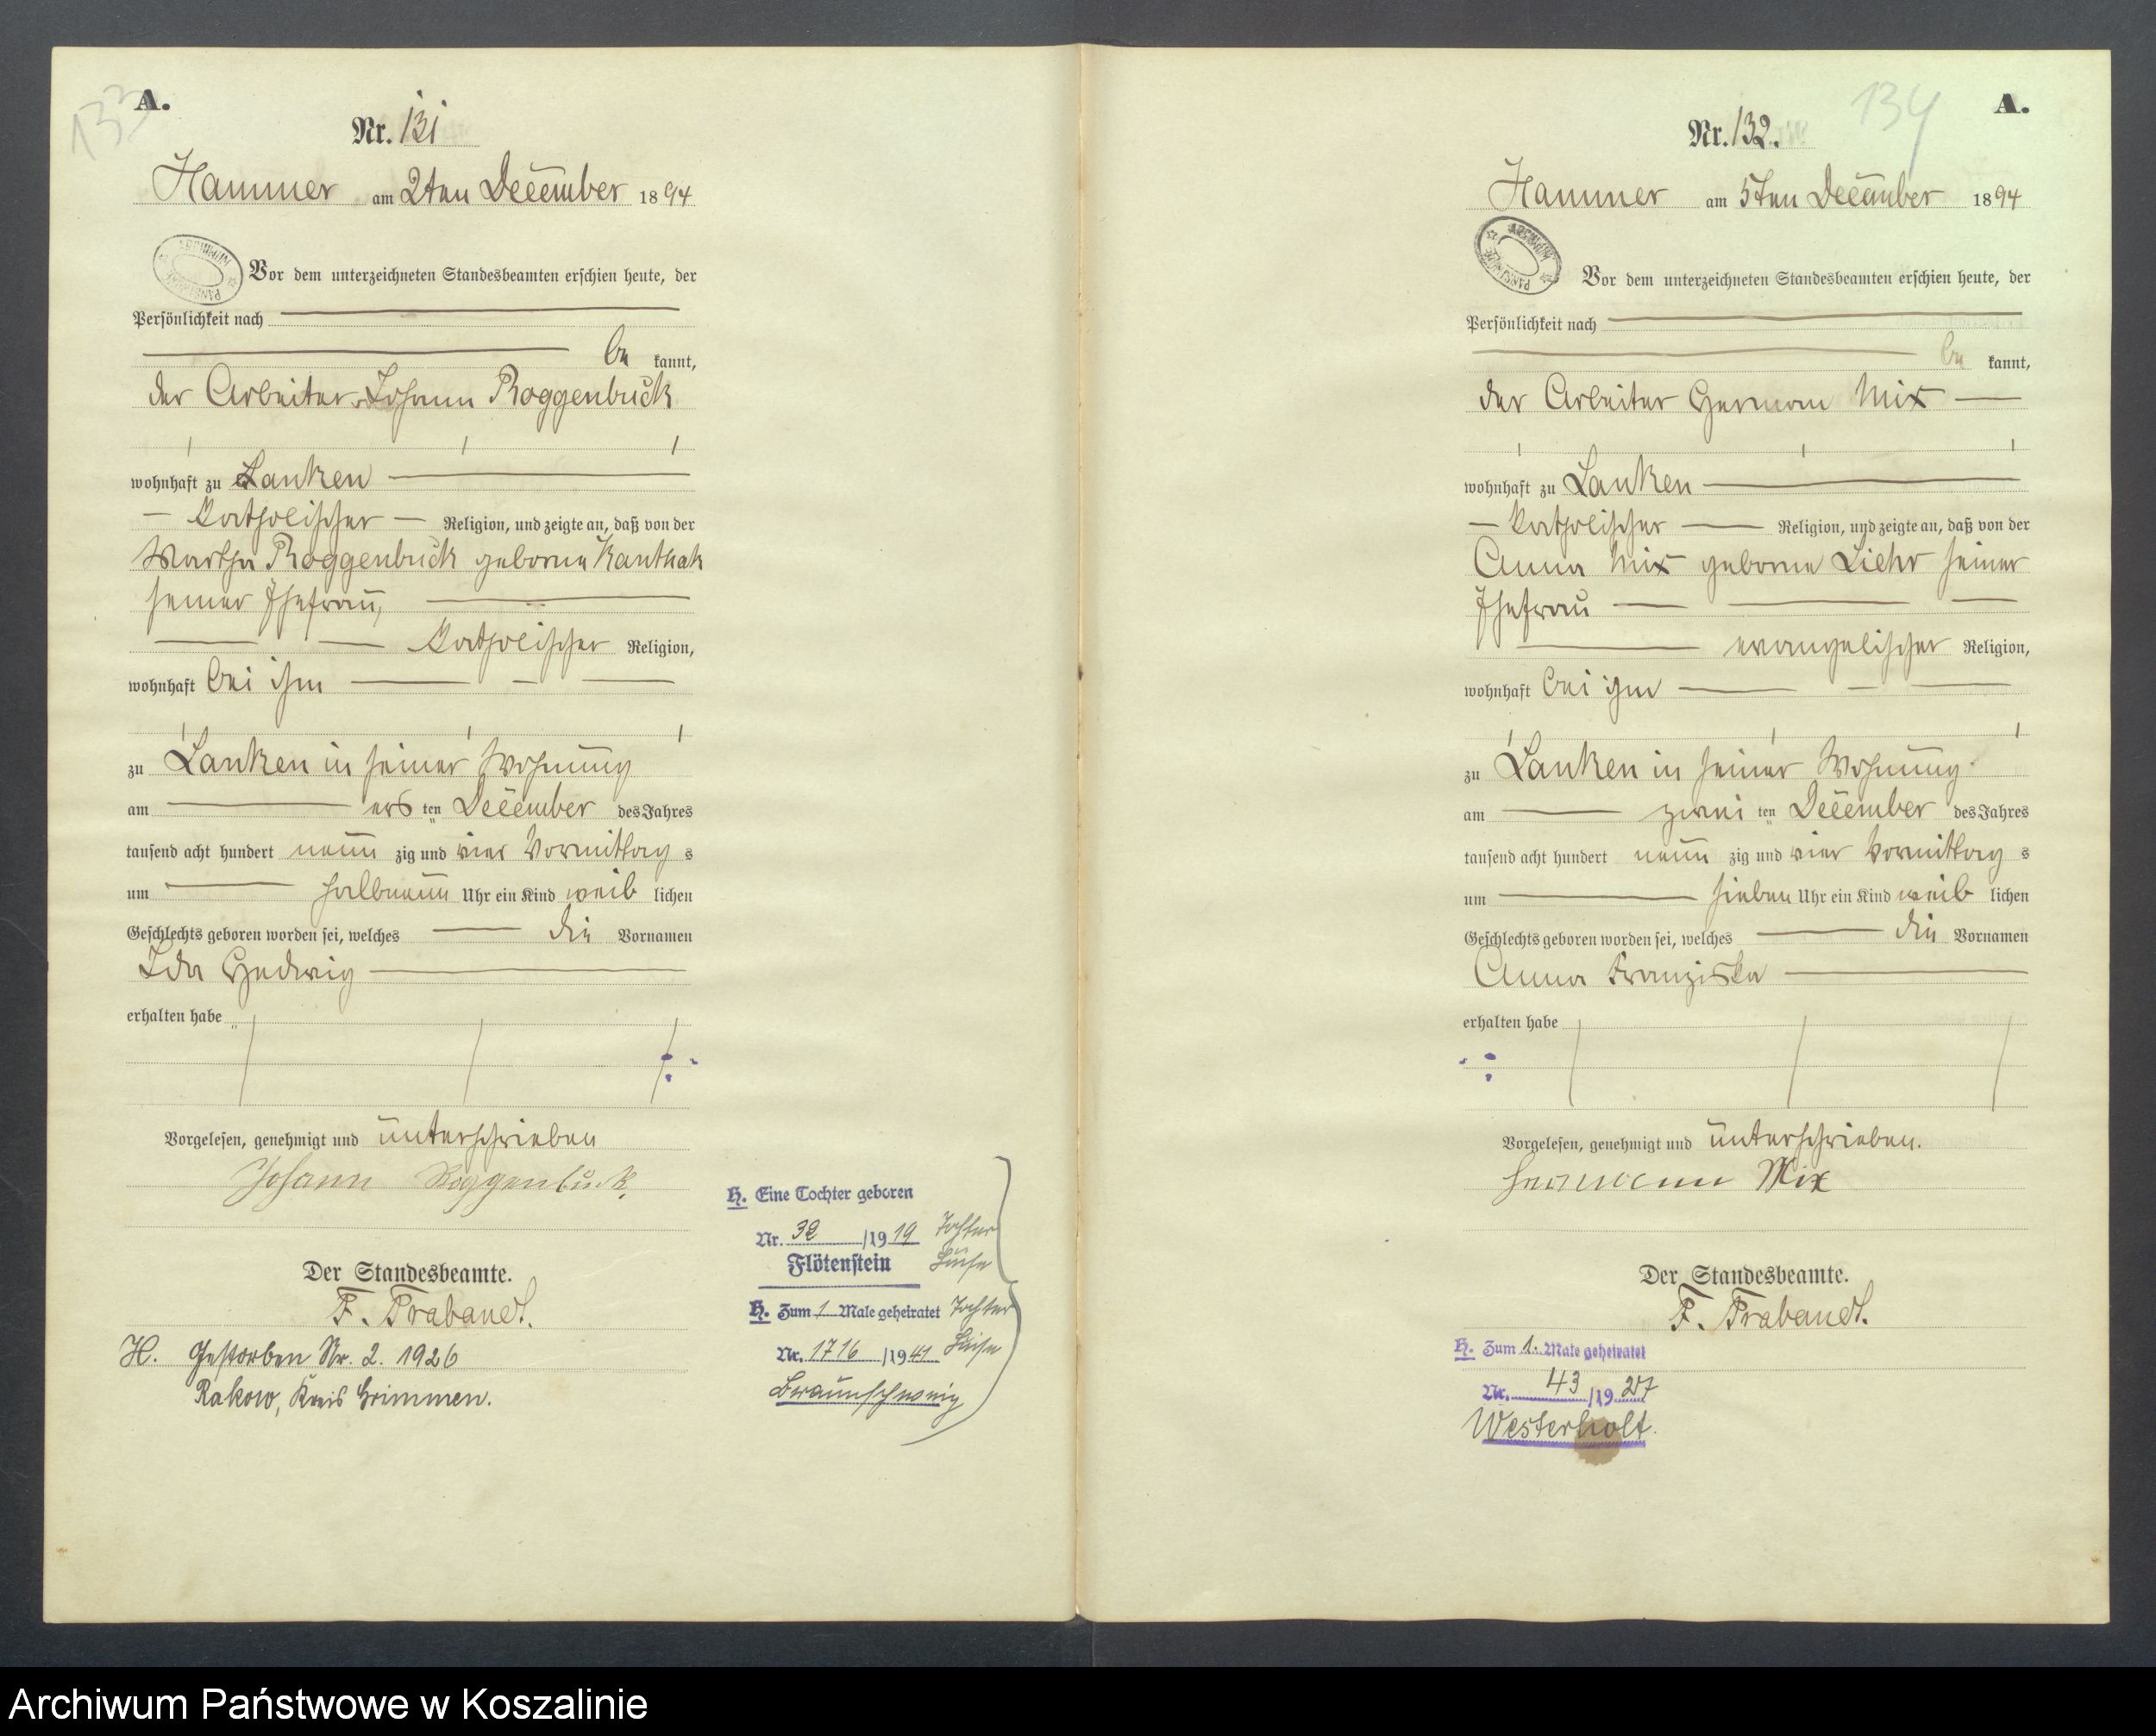 133
A.
Nr. 131
Hammer am 2ten December 1894
ARCHIWUM PAŃSTWOWE
Vor dem unterzeichneten Standesbeamten erschien heute, der
Persönlichkeit nach
be kannt,
der Arbeiter Johann Roggenbuck
wohnhaft zu Lanken
katholischer Religion, und zeigte an, daß von der
Martha Roggenbuck geborne Kanthak
seiner Ehefrau,
katholischer Religion,
wohnhaft bei ihm
zu Lanken in seiner Wohnung
am ers ten December des Jahres
tausend acht hundert neun zig und vier Vormittag s
um halbneun Uhr ein Kind weib lichen
Geschlechts geboren worden sei, welches die Vornamen
Ida Hedwig
erhalten habe
Vorgelesen, genehmigt und unterschrieben
Johann Roggenbuck.
Der Standesbeamte.
F. Trabandt.
H. Gestorben Nr. 2. 1926
Rakow, Kreis Grimmen.
H. Eine Tochter geboren
Nr. 32 /1919 Tochter
Flötenstein Luise
H. Zum 1 Male geheiratet Tochter
Nr. 1716 /1941 Luise
Braunschweig
134
A.
Nr. 132.
Hammer am 5ten December 1894
ARCHIWUM PAŃSTWOWE
Vor dem unterzeichneten Standesbeamten erschien heute, der
Persönlichkeit nach
be kannt,
der Arbeiter Herman Mix
wohnhaft zu Lanken
katholischer Religion, und zeigte an, daß von der
Anna Mix geborne Liehr seiner
Ehefrau
evangelischer Religion,
wohnhaft bei ihm
zu Lanken in seiner Wohnung
am zwei ten December des Jahres
tausend acht hundert neun zig und vier Vormittag s
um sieben Uhr ein Kind weib lichen
Geschlechts geboren worden sei, welches die Vornamen
Anna Franziska
erhalten habe
Vorgelesen, genehmigt und unterschrieben.
Hermann Mix
Der Standesbeamte.
F. Trabandt.
H. Zum 1. Male geheiratet
Nr. 43 /1927
Westerholt.
Archiwum Państwowe w Koszalinie